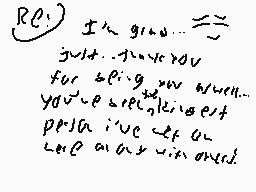 Re:
I'm glad...
just.. thank you
for being you as well...
you've been the kindest
person i've met on
here along with others.